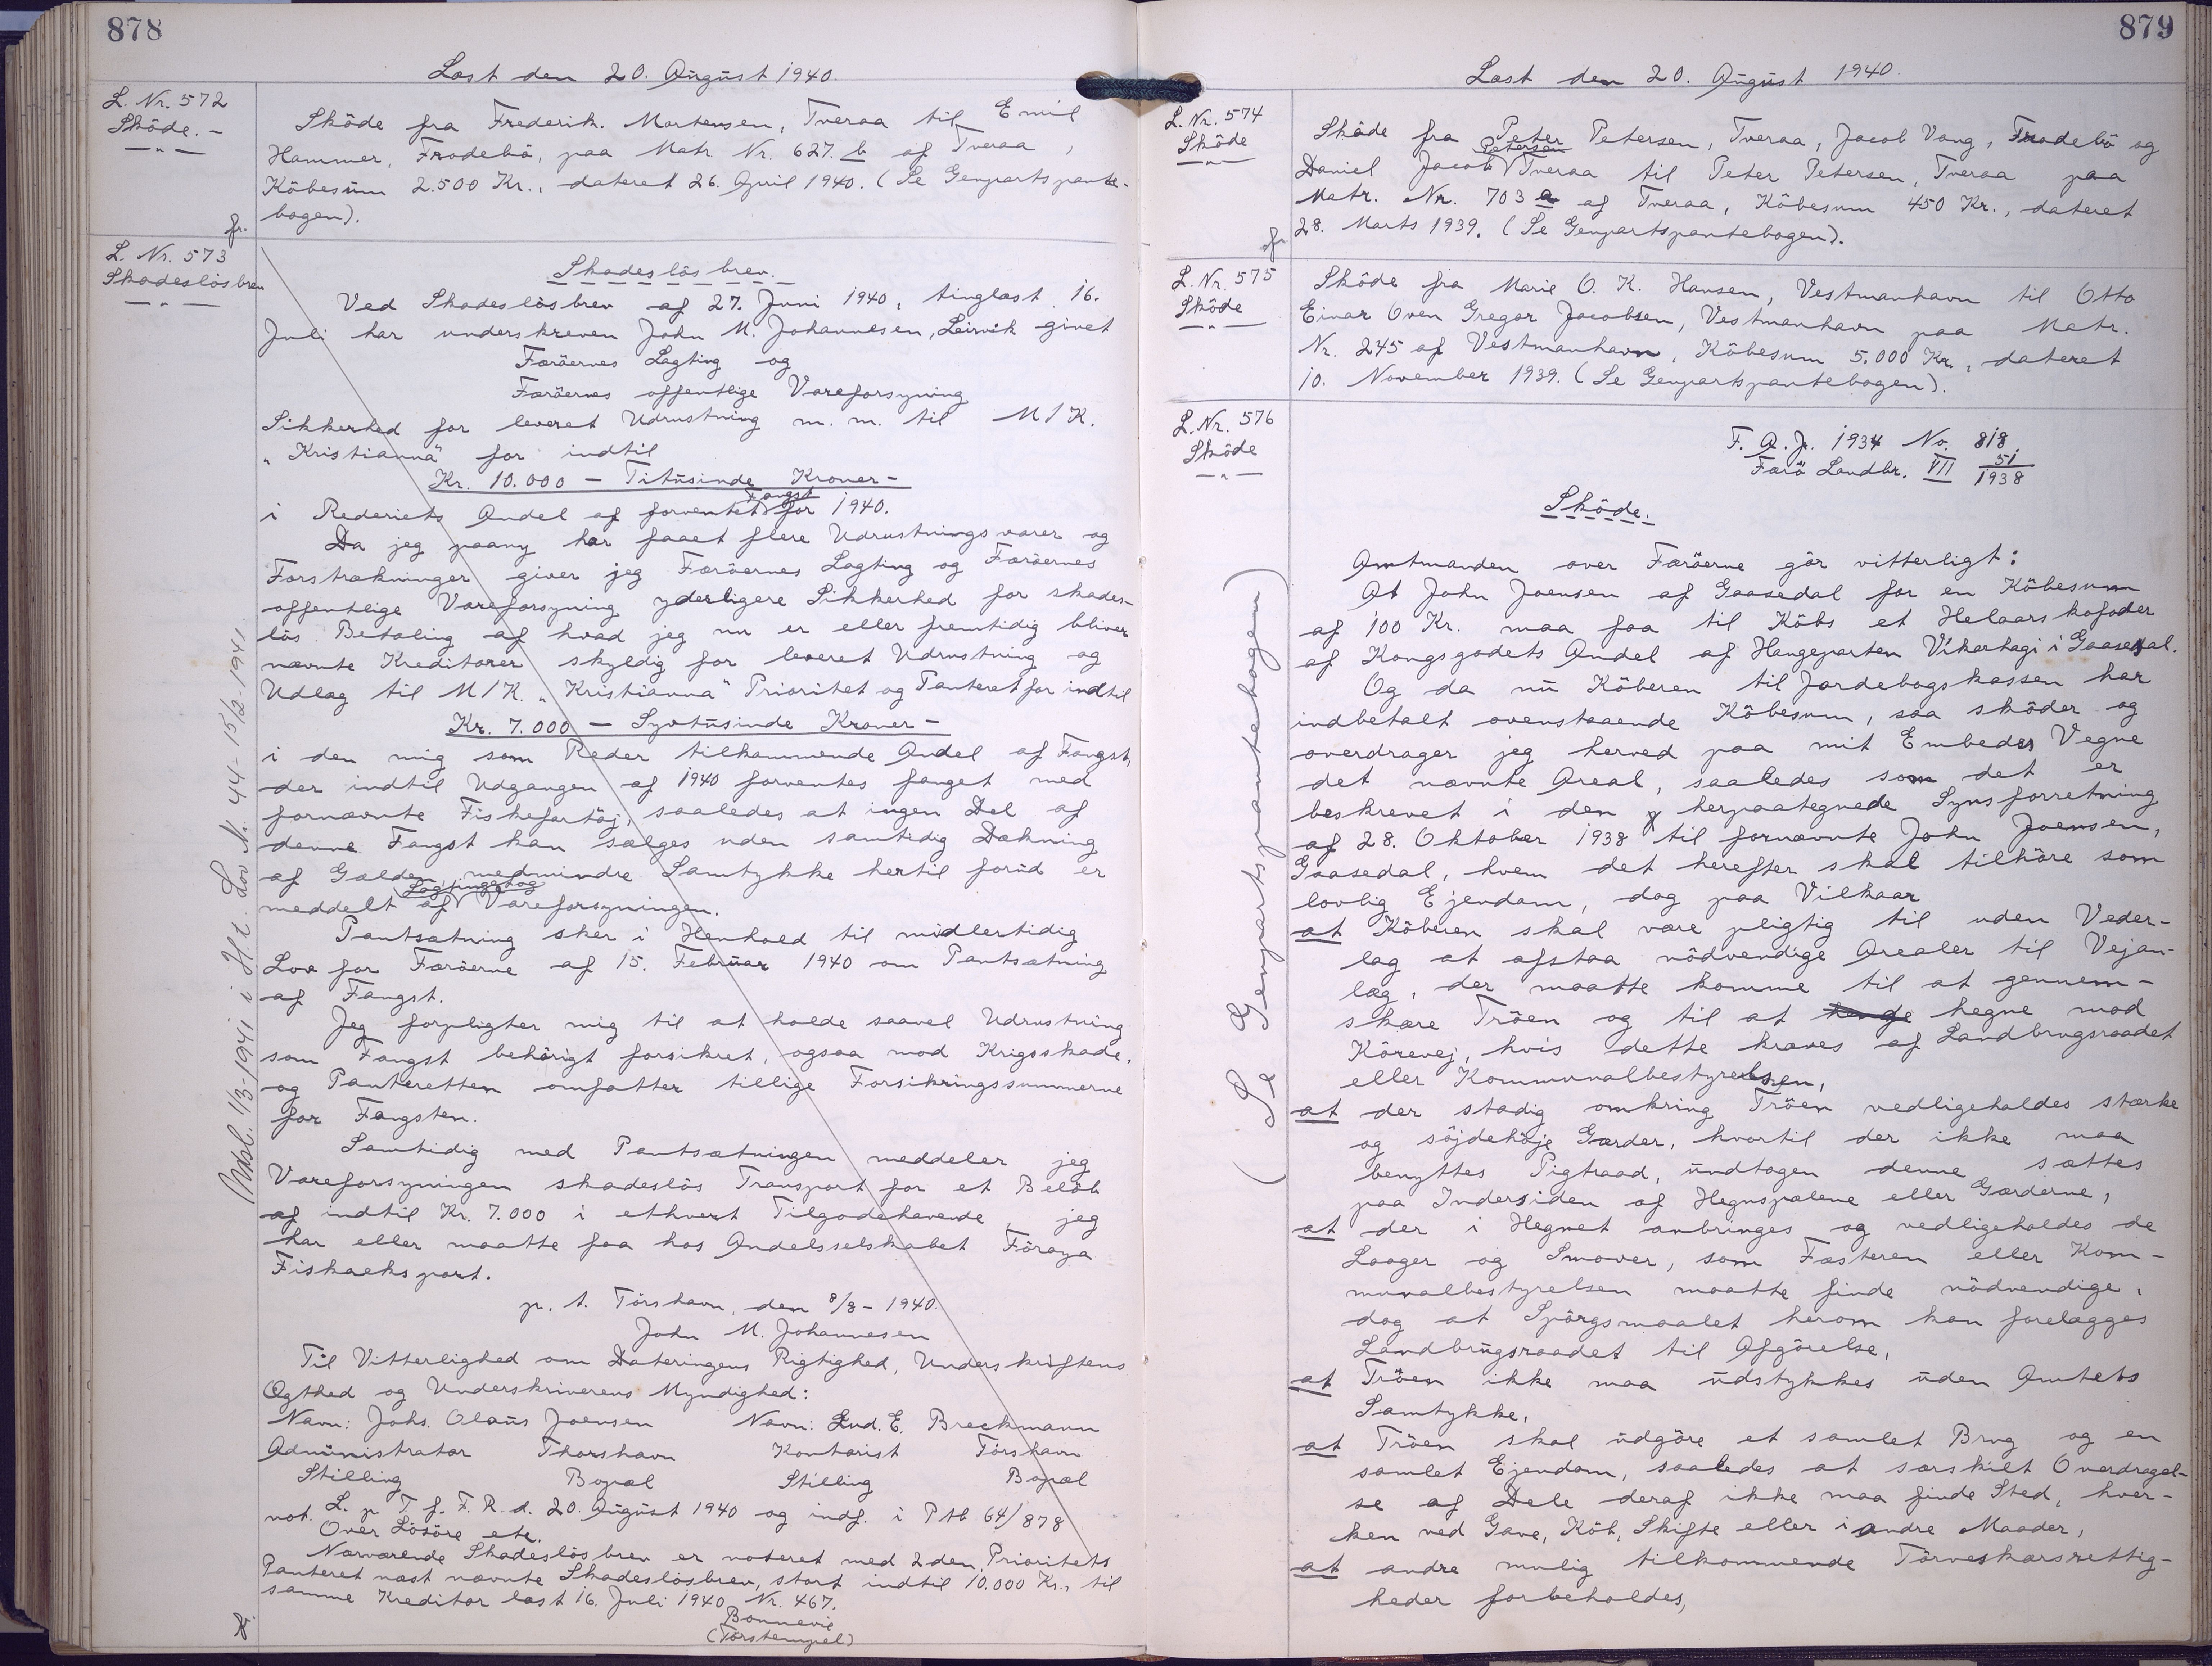 878
Læst den 20. August 1940.
L. Nr. 572
Sköde. -
- " -
Sköde fra Frederik. Mortensen, Tveraa til Emil
Hammer, Frodebö, paa Matr. Nr. 627. b af Tveraa,
Köbesum 2.500 Kr., dateret 26. April 1940. (Se Genpartspante-
bogen).
L. Nr. 573
Skadeslösbrev
- " -
Skadeslösbrev.
Ved Skadeslösbrev af 27. Juni 1940, tinglæst 16.
Juli har underskreven John M. Johannesen, Leirvik givet
Færöernes Lagting og
Færöernes offentlige Vareforsyning
Sikkerhed for leveret Udrustning m. m. til M/K.
"Kristianna" for indtil
Kr. 10.000 - Titusinde Kroner -
i Rederiets Andel af forventet Fangst for 1940.
Da jeg paany har faaet flere Udrustningsvarer og
Forstrækninger giver jeg Færöernes Lagting og Færöernes
offentlige Vareforsyning yderligere Sikkerhed for skades-
lös Betaling af hvad jeg nu er eller fremtidig bliver
nævnte Kreditorer skyldig for leveret Udrustning og
Udlæg til M/K. "Kristianna" Prioritet og Panteret for indtil
Kr. 7.000 - Syvtusinde Kroner -
i den mig som Reder tilkommende Andel af Fangst,
der indtil Udgangen af 1940 forventes fanget med
fornævnte Fiskefartöj, saaledes at ingen Del af
denne Fangst kan sælges uden samtidig Dækning
af Gælden, medmindre Samtykke hertil forud er
meddelt af Lagtinget og Vareforsyningen.
Pantsætning sker i Henhold til midlertidig
Lov for Færöerne af 15. Februar 1940 om Pantsætning
af Fangst.
Jeg forpligter mig til at holde saavel Udrustning
som Fangst behörigt forsikret, ogsaa mod Krigsskade,
og Panteretten omfatter tillige Forsikringssummerne
for Fangsten.
Samtidig med Pantsætningen meddeler jeg
Vareforsyningen skadeslös Transport for et Belöb
af indtil Kr. 7.000 i ethvert Tilgodehavende, jeg
har eller maatte faa hos Andelsselskabet Föroya
Fiskaeksport.
p. t. Tórshavn, den 8/8 - 1940.
John M. Johannesen
Til Vitterlighed om Dateringens Rigtighed, Underskriftens
Ægthed og Underskriverens Myndighed:
Navn: Johs. Olaus Joensen Navn: Lud. E. Breckmann
Administrator Thorshavn Kontorist Tórshavn
Stilling Bopæl Stilling Bopæl
not. L. p. T. f. F. R. d. 20. August 1940 og indf. i Ptb 64/878
Over Lösöre etc.
Nærværende Skadeslösbrev er noteret med 2den Prioritets
Panteret næst nævnte Skadeslösbrev, stort indtil 10.000 Kr., til
samme Kreditor læst 16. Juli 1940 Nr. 467.
Bonnevie
(Törstempel)
Udsl. 1/3-1941 i H. t. Lov Nr. 44 - 15/2-1941.
879
Læst den 20. August 1940.
L. Nr. 574
Sköde
- " -
Sköde fra Peter Petersen, Tveraa, Jacob Vang, Frodebö og
Daniel Jacob Petersen Tveraa til Peter Petersen, Tveraa paa
Matr. Nr. 703 a af Tveraa, Köbesum 450 Kr., dateret
28. Marts 1939. (Se Genpartspantebogen).
L. Nr. 575
Sköde
- " -
Sköde fra Marie O. K. Hansen, Vestmanhavn til Otto
Einar Oven Gregor Jacobsen, Vestmanhavn paa Matr.
Nr. 245 af Vestmanhavn, Köbesum 5.000 Kr., dateret
10. November 1939. (Se Genpartspantebogen).
L. Nr. 576
Sköde
- " -
F. A. J. 1934 No. 818.
Færö Landbr. VII 51/1938
Sköde.
Amtmanden over Færöerne gör vitterligt:
At John Joensen af Gaasedal for en Köbesum
af 100 Kr. maa faa til Köbs et Helaarskofoder
af Kongsgodets Andel af Haugeparten Vikarhagi i Gaasedal.
Og da nu Köberen til Jordebogskassen har
indbetalt ovenstaaende Köbesum, saa sköder og
overdrager jeg herved paa mit Embedes Vegne
det nævnte Areal, saaledes som det er
beskrevet i den herpaategnede Synsforretning
af 28. Oktober 1938 til fornævnte John Joensen,
Gaasedal, hvem det herefter skal tilhöre som
lovlig Ejendom, dog paa Vilkaar
at Köberen skal være pligtig til uden Veder-
lag at afstaa nödvendige Arealer til Vejan-
læg, der maatte komme til at gennem-
skære Tröen og til at hegne mod
Körevej, hvis dette kræves af Landbrugsraadet
eller Kommunalbestyrelsen,
at der stadig omkring Tröen vedligeholdes stærke
og söjdehöje Gærder, hvortil der ikke maa
benyttes Pigtraad, undtagen denne sættes
paa Indersiden af Hegnspælene eller Gærderne,
at der i Hegnet anbringes og vedligeholdes de
Laager og Smover, som Fæsteren eller Kom-
munalbestyrelsen maatte finde nödvendige,
dog at Spörgsmaalet herom kan forelægges
Landbrugsraadet til Afgörelse,
at Tröen ikke maa udstykkes uden Amtets
Samtykke,
at Tröen skal udgöre et samlet Brug og en
samlet Ejendom, saaledes at særskilt Overdragel-
se af Dele deraf ikke maa finde Sted, hver-
ken ved Gave, Köb, Skifte eller i andre Maader,
at andre mulig tilkommende Törveskærsrettig-
heder forbeholdes,
(Se Genpartspantebogen)